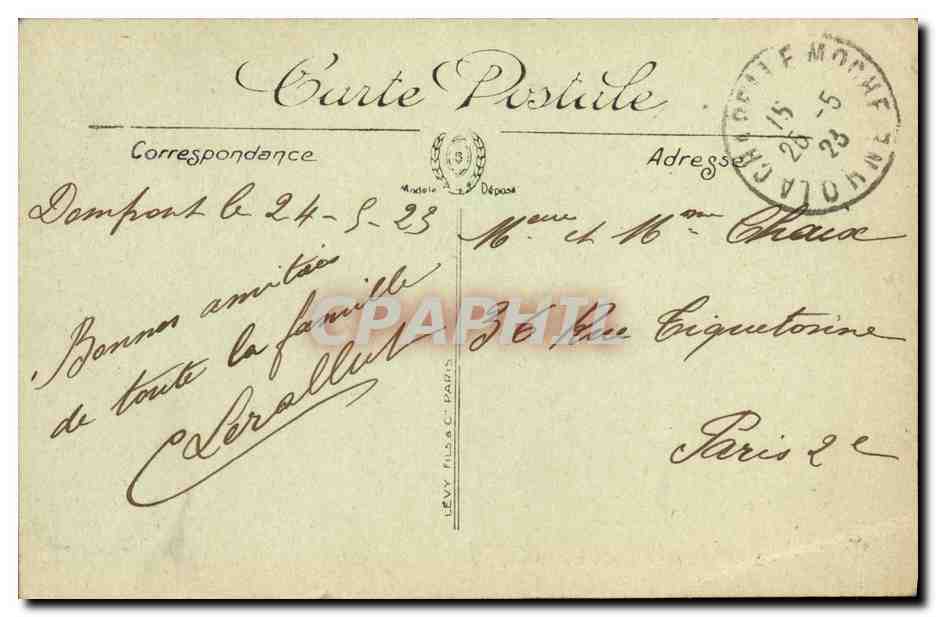 Carte Postale
Correspondance
Adresse
Modèle Déposé
LA CHAPELLE MOCHE ORNE
15
26 -5
23
Domfront le 24-5-23
Bonnes amitiés
de toute la famille
Lerallut
Mr et Mme Chaix
36 Rue Tiquetonne
Paris 2e
CPAPHIL
LÉVY FILS & Cie PARIS